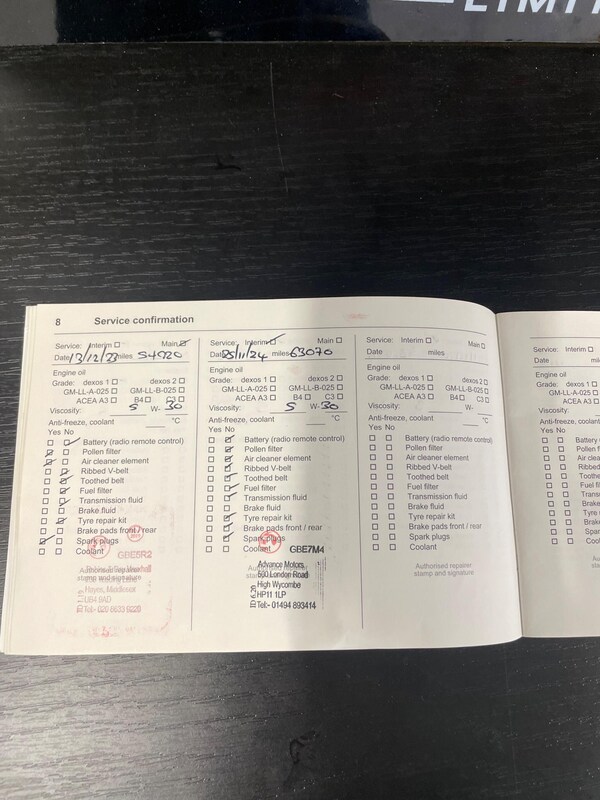 LIMIT
8 Service confirmation
Service: Interim Main
Date 13/12/23 miles 54920
Engine oil
Grade: dexos 1 dexos 2
GM-LL-A-025 GM-LL-B-025
ACEA A3 B4 C3
Viscosity: 5 W- 30
Anti-freeze, coolant °C
Yes No
Battery (radio remote control)
Pollen filter
Air cleaner element
Ribbed V-belt
Toothed belt
Fuel filter
Transmission fluid
Brake fluid
Tyre repair kit
Brake pads front / rear
Spark plugs
Coolant
GBE5R2
stamp and signature
Hayes, Middlesex
UB4 8AD
Service: Interim Main
Date 25/11/24 miles 63070
Engine oil
Grade: dexos 1 dexos 2
GM-LL-A-025 GM-LL-B-025
ACEA A3 B4 C3
Viscosity: 5 W- 30
Anti-freeze, coolant °C
Yes No
Battery (radio remote control)
Pollen filter
Air cleaner element
Ribbed V-belt
Toothed belt
Fuel filter
Transmission fluid
Brake fluid
Tyre repair kit
Brake pads front / rear
Spark plugs
Coolant
GBE7M4
Advance Motors
500 London Road
High Wycombe
HP11 1LP
Tel:- 01494 893414
Service: Interim Main
Date miles
Engine oil
Grade: dexos 1 dexos 2
GM-LL-A-025 GM-LL-B-025
ACEA A3 B4 C3
Viscosity: W-
Anti-freeze, coolant °C
Yes No
Battery (radio remote control)
Pollen filter
Air cleaner element
Ribbed V-belt
Toothed belt
Fuel filter
Transmission fluid
Brake fluid
Tyre repair kit
Brake pads front / rear
Spark plugs
Coolant
Authorised repairer
stamp and signature
Service: Interim
Date
Engine oil
Grade: dexos 1
GM-LL-A-025
ACEA A3
Viscosity:
Anti-freeze, coolant
Yes No
Batter
Pollen
Air cle
Ribbe
Tooth
Fuel fi
Trans
Brake
Tyre
Brak
Spa
Coo